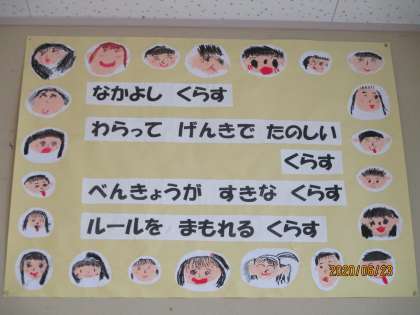 なかよし くらす
わらって げんきで たのしい
くらす
べんきょうが すきな くらす
ルールを まもれる くらす
2020/06/23